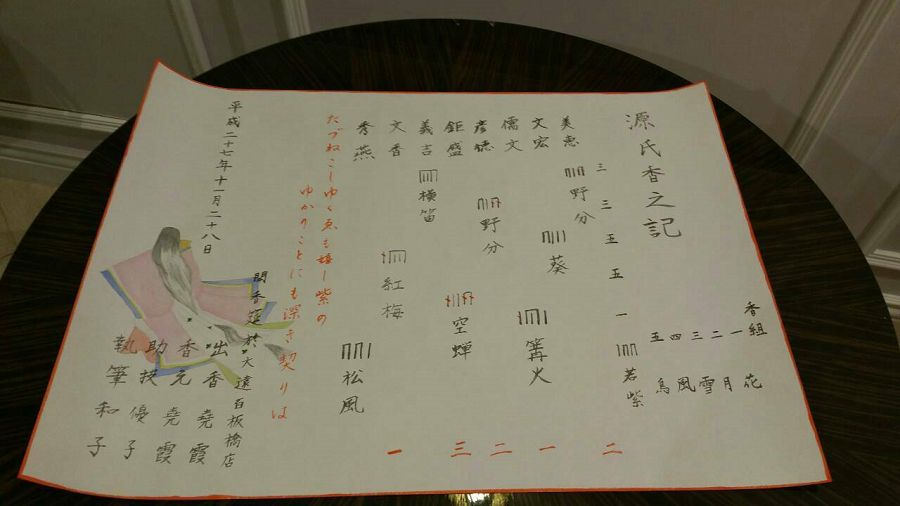 源氏香之記
香組
一 花
二 月
三 雪
四 風
五 鳥
三 三 五 五 一 若紫
美恵 野分
文宏 葵
儒文 篝火
彦徳 野分
鉅盛 空蟬
義吉 横笛
文香 紅梅
秀燕 松風
二 一 二 三 一
たづねこしゆくゑも し紫の
ゆかりことにも深き契りは
平成二十七年十一月二十八日
聞香筵於大遠百板橋店
出香 堯霞
香元 堯霞
助扶 優子
執筆 和子